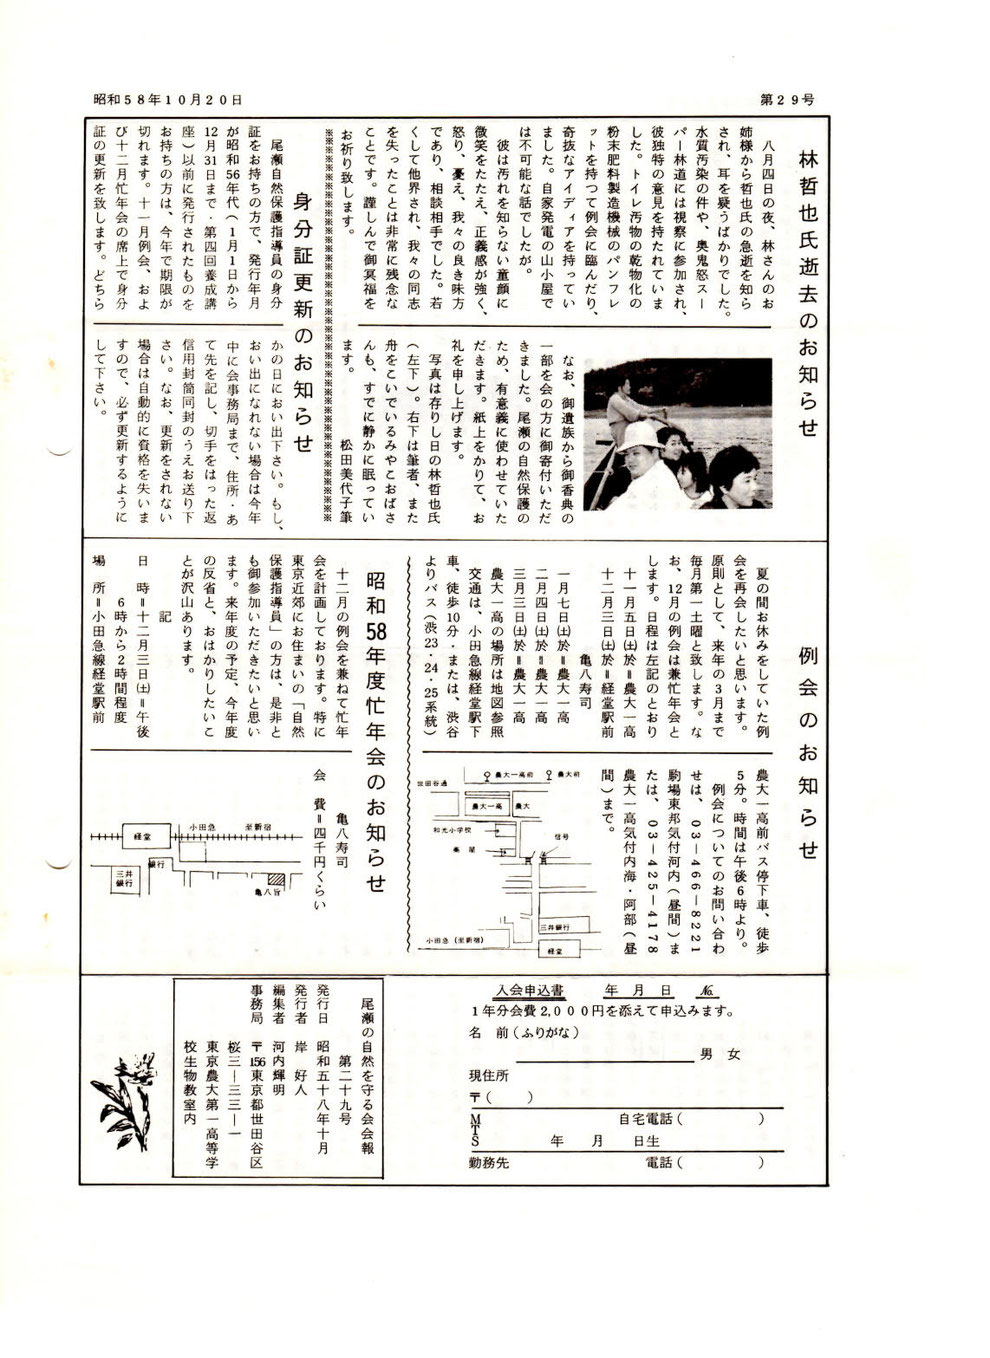 昭和58年10月20日
第29号
林哲也氏逝去のお知らせ
八月四日の夜、林さんのお
姉様から哲也氏の急逝を知ら
され、耳を疑うばかりでした。
水質汚染の件や、奥鬼怒スー
パー林道には視察に参加され、
彼独特の意見を持たれていま
した。トイレ汚物の乾物化の
粉末肥料製造機械のパンフレ
ットを持って例会に臨んだり、
奇抜なアイディアを持ってい
ました。自家発電の山小屋で
は不可能な話でしたが。
彼は汚れを知らない童顔に
微笑をたたえ、正義感が強く、
怒り、憂え、我々の良き味方
であり、相談相手でした。若
くして他界され、我々の同志
を失ったことは非常に残念な
ことです。謹しんで御冥福を
お祈り致します。
なお、御遺族から御香典の
一部を会の方に御寄付いただ
きました。尾瀬の自然保護の
ため、有意義に使わせていた
だきます。紙上をかりて、お
礼を申し上げます。
写真は存りし日の林哲也氏
(左下)。右下は筆者、また
舟をこいでいるみやこおばさ
んも、すでに静かに眠ってい
ます。
松田美代子筆
※※※※※※※※※※※※※※※※※※※※※※※※※※※※※※
身分証更新のお知らせ
尾瀬自然保護指導員の身分
証をお持ちの方で、発行年月
が昭和56年代(1月1日から
12月31日まで・第四回養成講
座)以前に発行されたものを
お持ちの方は、今年で期限が
切れます。十一月例会、およ
び十二月忙年会の席上で身分
証の更新を致します。どちら
かの日においで出下さい。もし、
おい出になれない場合は今年
中に会事務局まで、住所・あ
て先を記し、切手をはった返
信用封筒同封のうえお送り下
さい。なお、更新をされない
場合は自動的に資格を失いま
すので、必ず更新するように
して下さい。
例会のお知らせ
夏の間お休みをしていた例
会を再会したいと思います。
原則として、来年の3月まで
毎月第一土曜と致します。な
お、12月の例会は兼忙年会と
します。日程は左記のとおり
十一月五日(土)於=農大一高
十二月三日(土)於=経堂駅前
亀八寿司
一月七日(土)於=農大一高
二月四日(土)於=農大一高
三月三日(土)於=農大一高
農大一高の場所は地図参照
交通は、小田急線経堂駅下
車、徒歩10分・または、渋谷
よりバス(渋23・24・25系統)
農大一高前バス停下車、徒歩
5分。時間は午後6時より。
例会についてのお問い合わ
せは、03-466-8221
駒場東邦気付河内(昼間)ま
たは、03-425-4178
農大一高気付内海・阿部(昼
間)まで。
農大一高前
農大前
世田谷通
農大一高
農大
和光小学校
薬屋
信号
三井銀行
小田急(至新宿)
経堂
昭和58年度忙年会のお知らせ
十二月の例会を兼ねて忙年
会を計画しております。特に
東京近郊にお住まいの「自然
保護指導員」の方は、是非と
も御参加いただきたいと思い
ます。来年度の予定、今年度
の反省と、おはかりしたいこ
とが沢山あります。
記
日 時=十二月三日(土)=午後
6時から2時間程度
場 所=小田急線経堂駅前
亀八寿司
会 費=四千円くらい
経堂
小田急
至新宿
銀行
三井
銀行
亀八
入会申込書 年 月 日 No.
1年分会費2,000円を添えて申込みます。
名 前(ふりがな)
男 女
現住所
〒( )
自宅電話( )
M
T
S
年 月 日生
勤務先 電話( )
尾瀬の自然を守る会会報
第二十九号
発行日 昭和五十八年十月
発行者 岸 好人
編集者 河内輝明
事務局 〒156東京都世田谷区
桜三ー三三ー一
東京農大第一高等学
校生物教室内